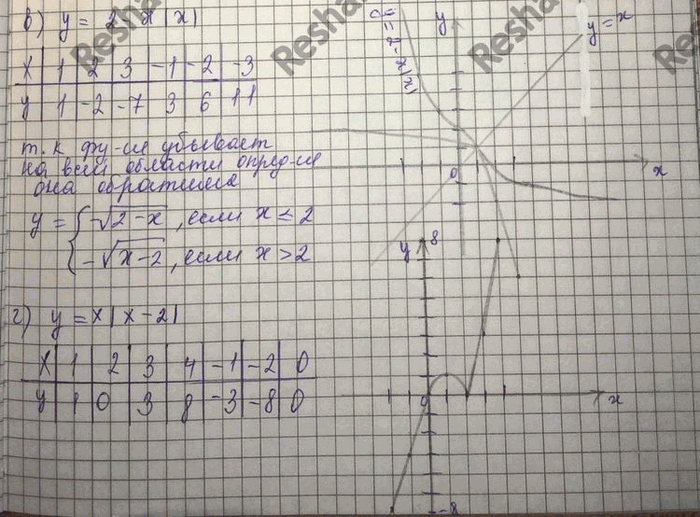 в) y = 2 - x|x|
x | 1 | 2 | 3 | -1 | -2 | -3
y | 1 | -2 | -7 | 3 | 6 | 11
т.к фу-ие убывает
на всей области опред-ие
она обратима
y = { -√2-x, если x ≤ 2
-√x-2, если x > 2
г) y = x|x-2|
x | 1 | 2 | 3 | 4 | -1 | -2 | 0
y | 1 | 0 | 3 | 8 | -3 | -8 | 0
y=2-x|x|
y
y=x
0
x
y
8
0
x
-8
Resha
Resha
Resha